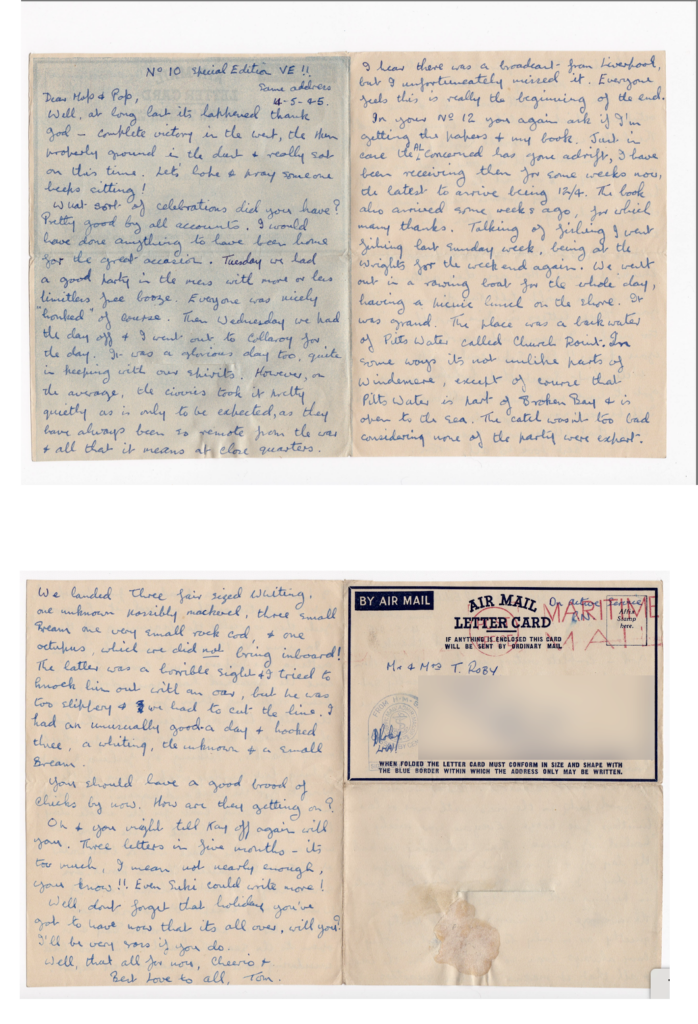 Nº 10 Special Edition VE !!
Same address
4-5-45.
Dear Mops & Pop,
Well, at long last its happened thank
god – complete victory in the west, the Hun
properly ground in the dust & really sat
on this time. Lets hope & pray someone
keeps sitting!
What sort of celebrations did you have?
Pretty good by all accounts. I would
have done anything to have been home
for the great occasion. Tuesday we had
a good party in the mess with more or less
limitless free booze. Everyone was nicely
"honked" of course. Then Wednesday we had
the day off & I went out to Collaroy for
the day. It was a glorious day too, quite
in keeping with our spirits. However, on
the average, the civvies took it pretty
quietly as is only to be expected, as they
have always been so remote from the war
& all that it means at close quarters.
I hear there was a broadcast from Liverpool,
but I unfortunately missed it. Everyone
feels this is really the beginning of the end.
In your Nº 12 you again ask if I'm
getting the papers & my book. Just in
case the AL concerned has gone adrift, I have
been receiving them for some weeks now,
the latest to arrive being 12/4. The book
also arrived some weeks ago, for which
many thanks. Talking of fishing I went
fishing last Sunday week, being at the
Wrights for the week end again. We went
out in a rowing boat for the whole day,
having a picnic lunch on the shore. It
was grand. The place was a backwater
of Pitts Water called Church Point. In
some ways its not unlike parts of
Windemere, except of course that
Pitts Water is part of Broken Bay & is
open to the sea. The catch wasn't too bad
considering none of the party were expert.
We landed three fair sized Whiting,
one unknown possibly mackerel, three small
Bream one very small rock cod, & one
octupus, which we did not bring inboard!
The latter was a horrible sight & I tried to
knock him out with an oar, but he was
too slippery & we had to cut the line. I
had an unusually good a day & hooked
three, a whiting, the unknown & a small
Bream.
You should have a good brood of
chicks by now. How are they getting on?
Oh & you might tell Kay off again will
you. Three letters in five months – its
too much, I mean not nearly enough,
you know!! Even Suki could write more!
Well, dont forget that holiday you've
got to have now that its all over, will you?
I'll be very cross if you do.
Well, that all for now, Cheerio &
Best Love to all, Tom.
BY AIR MAIL
AIR MAIL
LETTER CARD
IF ANYTHING IS ENCLOSED THIS CARD
WILL BE SENT BY ORDINARY MAIL
On active Service
Affix
Stamp
here.
MARITIME
MAIL
Mr & Mrs T. Roby
WHEN FOLDED THE LETTER CARD MUST CONFORM IN SIZE AND SHAPE WITH
THE BLUE BORDER WITHIN WHICH THE ADDRESS ONLY MAY BE WRITTEN.